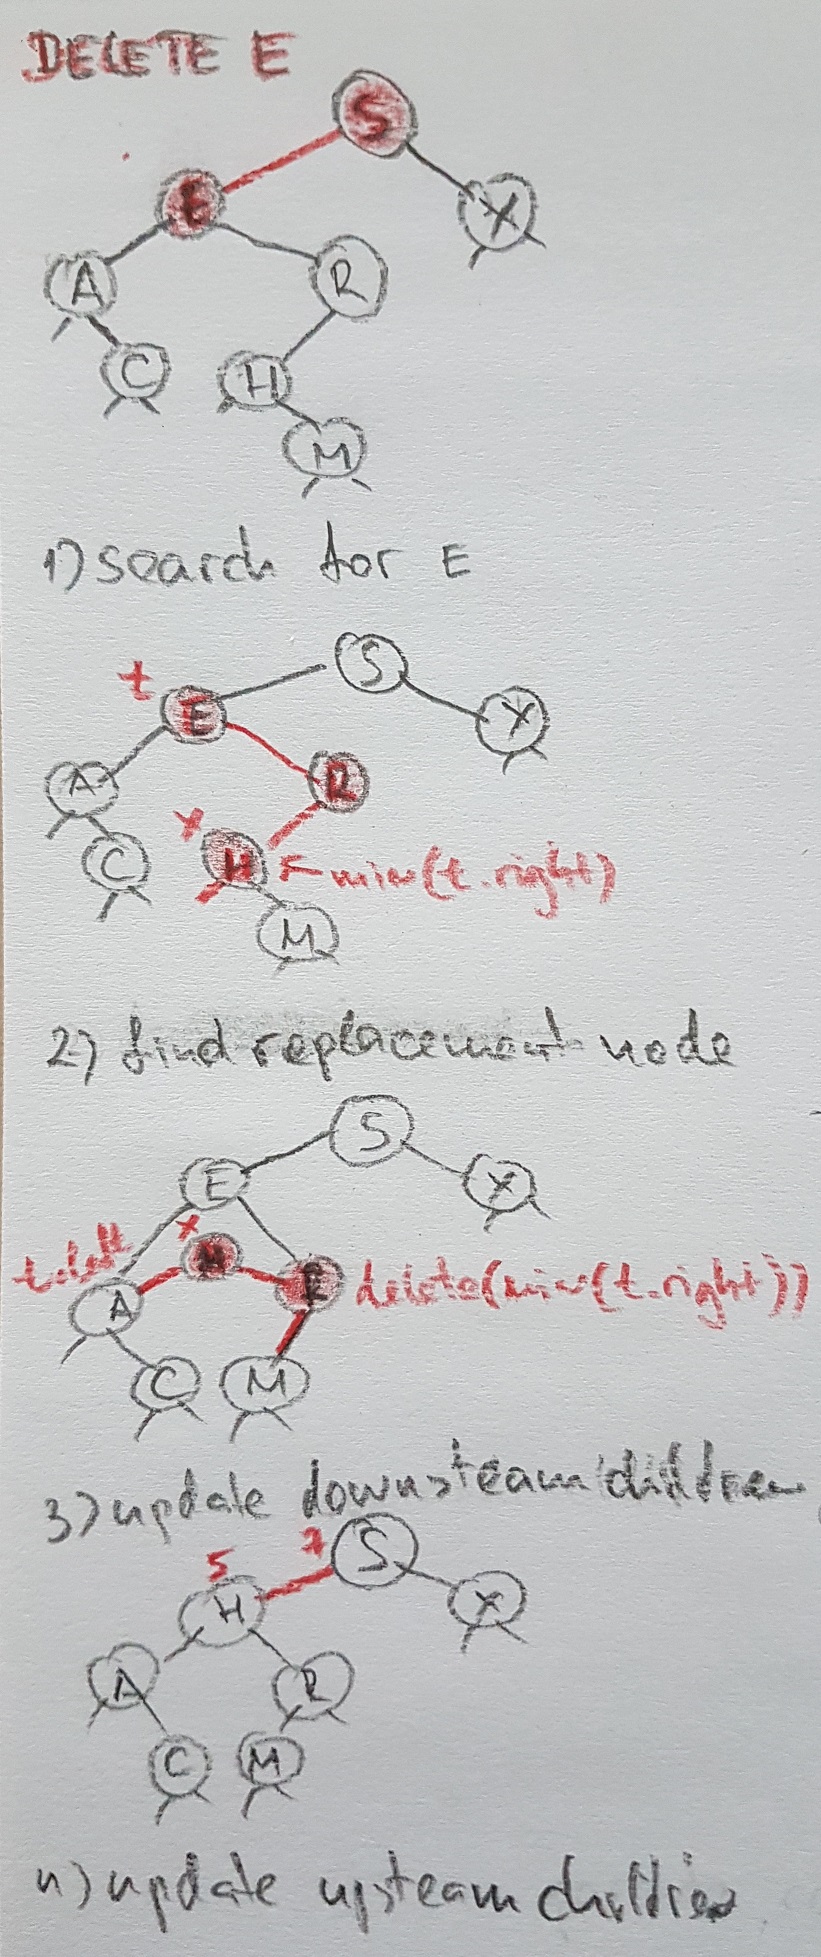 DELETE E
S
E
X
A
R
C
H
M
1) search for E
t
S
E
X
A
R
x
C
H
←min(t.right)
M
2) find replacement node
S
E
X
t.left
x
H
A
R
delete(min(t.right))
C
M
3) update downsteam children
7
S
5
H
X
A
R
C
M
4) update upsteam children